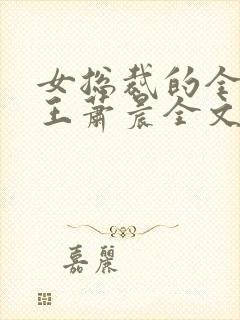 女总裁的全
王萧晨全文
嘉麗